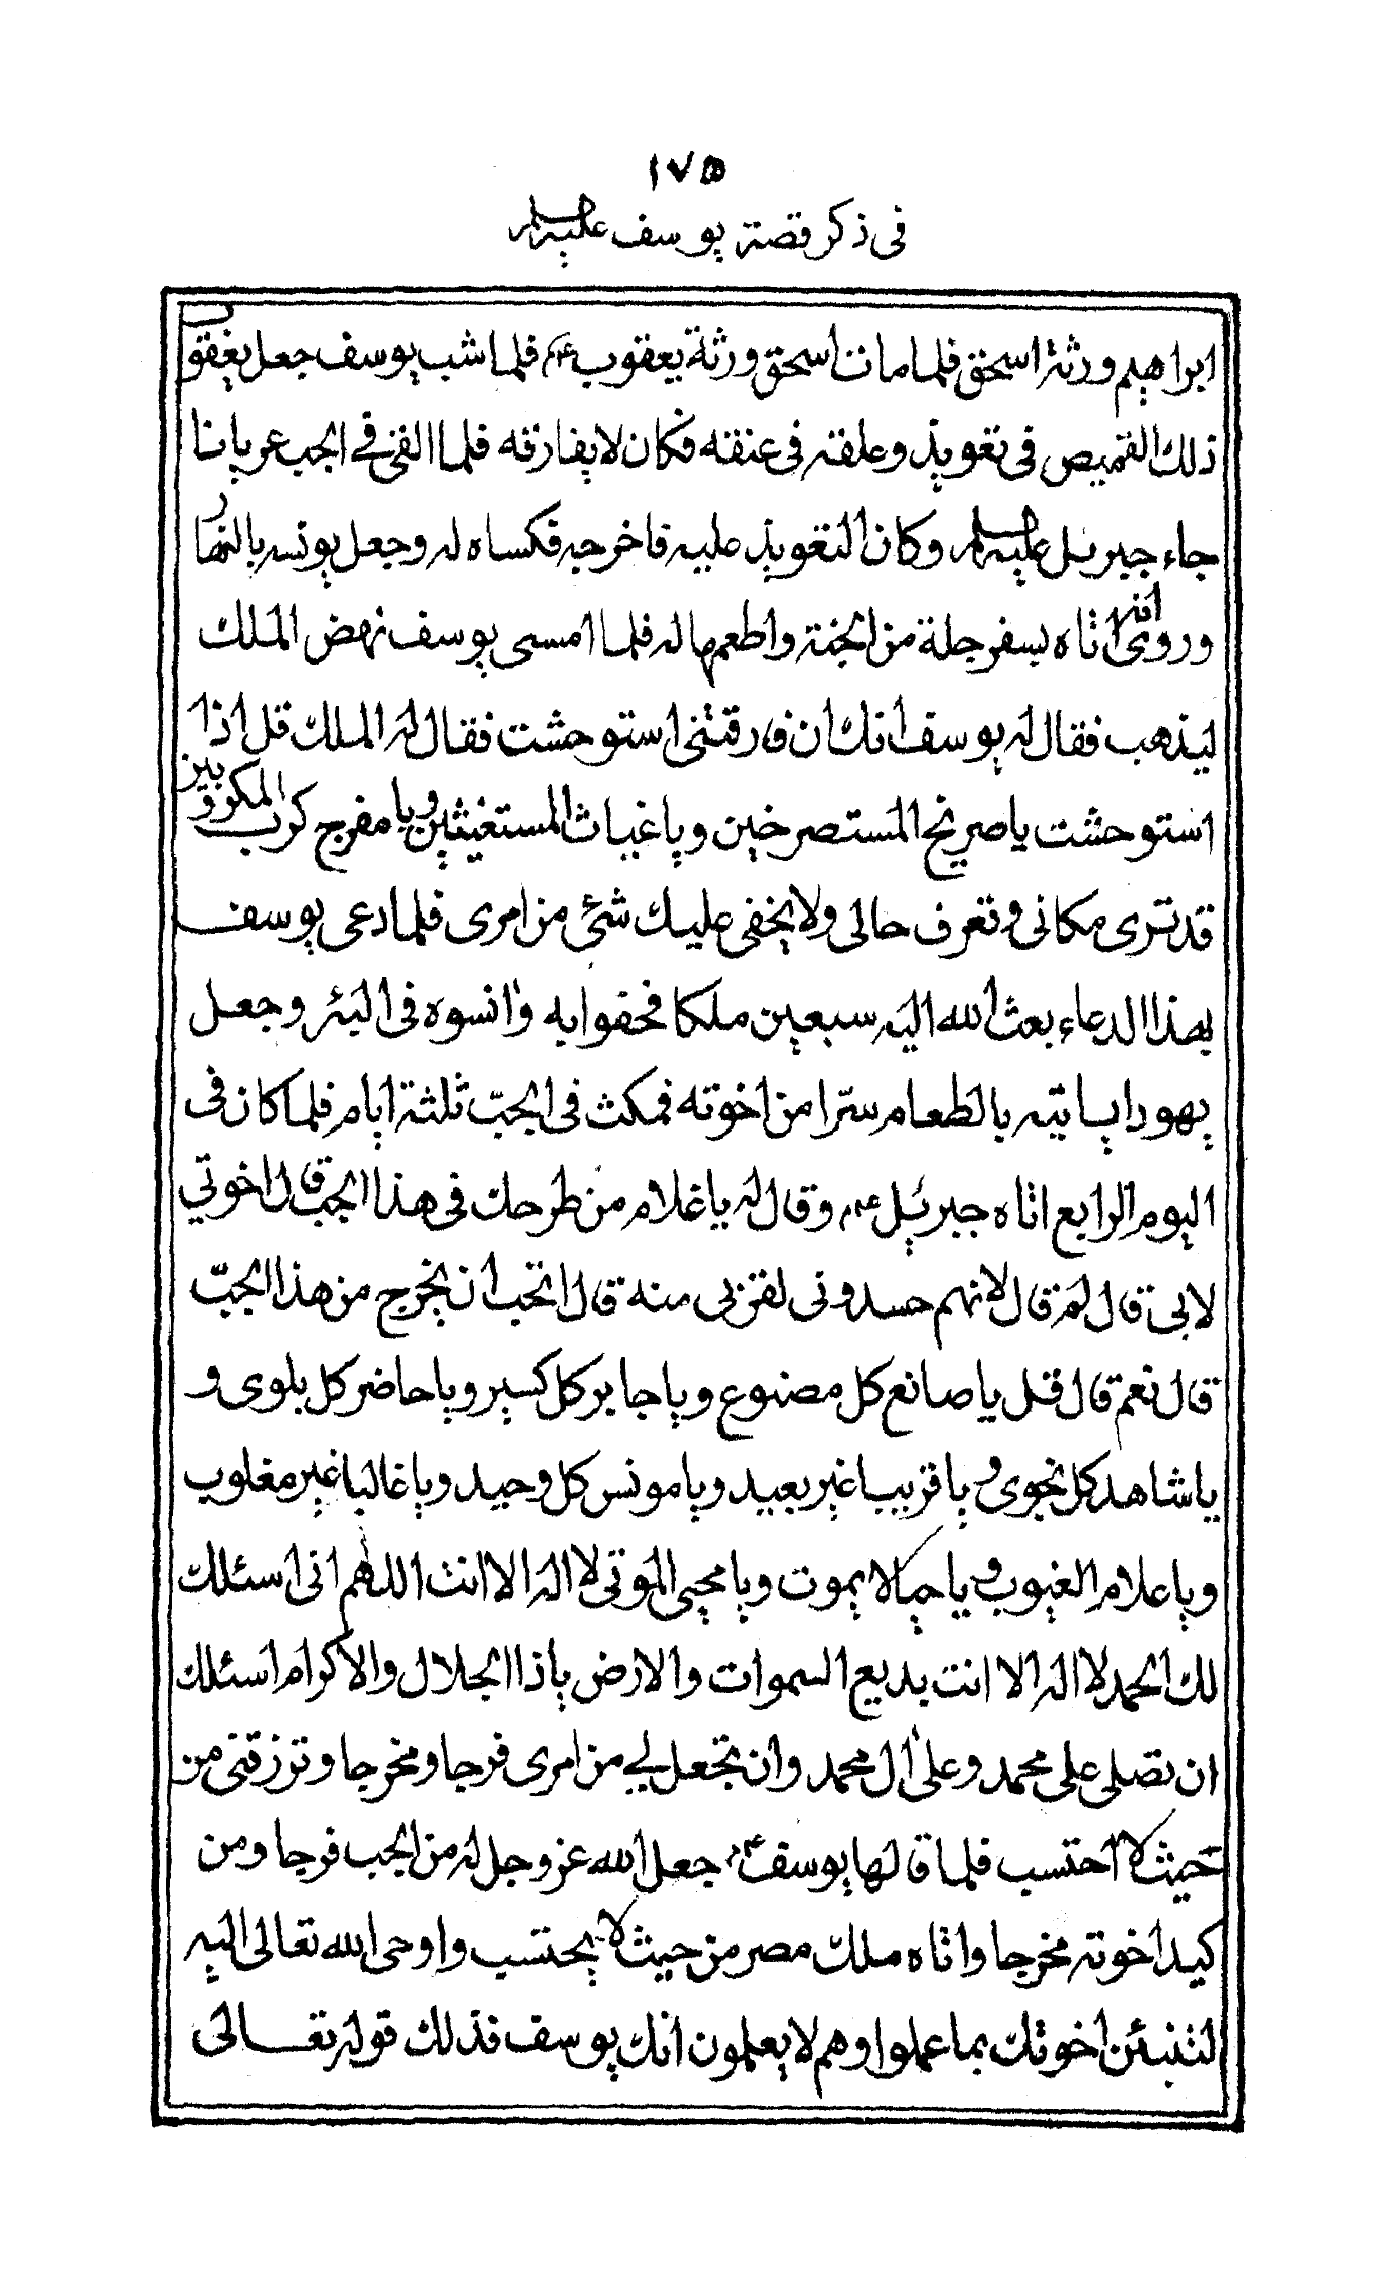 ١٧٥
فى ذكر قصة يوسف عليه السلم
ابراهيم ورثة اسحق فلما مات اسحق ورثة يعقوب ع م فلما شب يوسف جعل يعقوب
ذلك القميص فى تعويذ وعلقه فى عنقه فكان لا يفارقه فلما القى فى الجب عريانا
جاء جبريل عليه السلم وكان التعويذ عليه فاخرجه فكساه له وجعل يونسه بالنهار
وروى انه اتاه بسفرجلة من الجنة واطعمها له فلما امسى يوسف نهض الملك
ليذهب فقال له يوسف انك ان فارقتنى استوحشت فقال له الملك قل اذا
استوحشت يا صريخ المستصرخين ويا غياث المستغيثين ويا مفرج كرب المكروبين
قد ترى مكانى وتعرف حالى ولا يخفى عليك شئ من امرى فلما دعى يوسف
بهذا الدعاء بعث الله اليه سبعين ملكا فحفوا به وانسوه فى البئر وجعل
يهودا ياتيه بالطعام سرّا من اخوته فمكث فى الجبّ ثلثة ايام فلما كان فى
اليوم الرابع اتاه جبرئيل ع م وقال له يا غلام من طرحك فى هذا الجب قال اخوتي
لابى قال لم قال لانهم حسدونى لقربى منه قال اتحب ان تخرج من هذا الجبّ
قال نعم قال قل يا صانع كل مصنوع ويا جابر كل كسير ويا حاضر كل بلوى و
يا شاهد كل نجوى و يا قريبا غير بعيد ويا مونس كل وحيد ويا غالبا غير مغلوب
ويا علام الغيوب و يا حيا لا يموت ويا محيى الموتى لا اله الا انت اللهم انى اسئلك
لك الحمد لا اله الا انت بديع السموات والارض ياذا الجلال والاكرام اسئلك
ان تصلى على محمد وعلى ال محمد وان تجعل لي من امرى فرجا ومخرجا وترزقنى من
حيث لا احتسب فلما قالها يوسف ع م جعل الله عز وجل له من الجب فرجا ومن
كيد اخوته مخرجا واتاه ملك مصر من حيث لا يحتسب واوحى الله تعالى اليه
لتنبئن اخوتك بما عملوا وهم لا يعلمون انك يوسف فذلك قوله تعالى